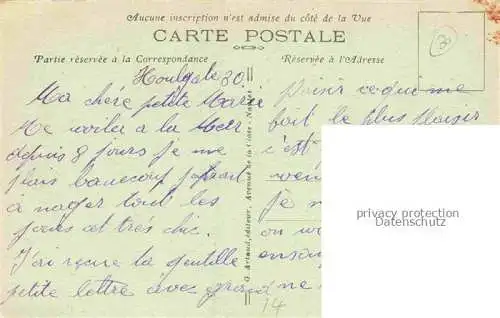 Aucune inscription n'est admise du côté de la Vue
CARTE POSTALE
Partie réservée à la Correspondance
Réservée à l'Adresse
Houlgate 30
Ma chére petite Marie
Me voila a la Mer
depuis 8 jours je me
plais beaucoup
à nager tout les
jours et trés chic.
J'ai reçue ta gentille
petite lettre avec grand
plaisir ce qui me
fait le plus plaisir
c'est
je
on
ne
G. Artaud, éditeur, Avenue de la Close - Nantes
privacy protection
Datenschutz
14